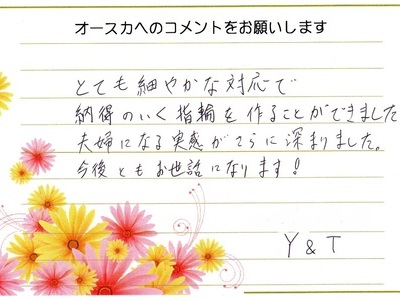 オースカへのコメントをお願いします
とても細やかな対応で
納得のいく指輪を作ることができました
夫婦になる実感がさらに深まりました。
今後ともお世話になります!
Y & T